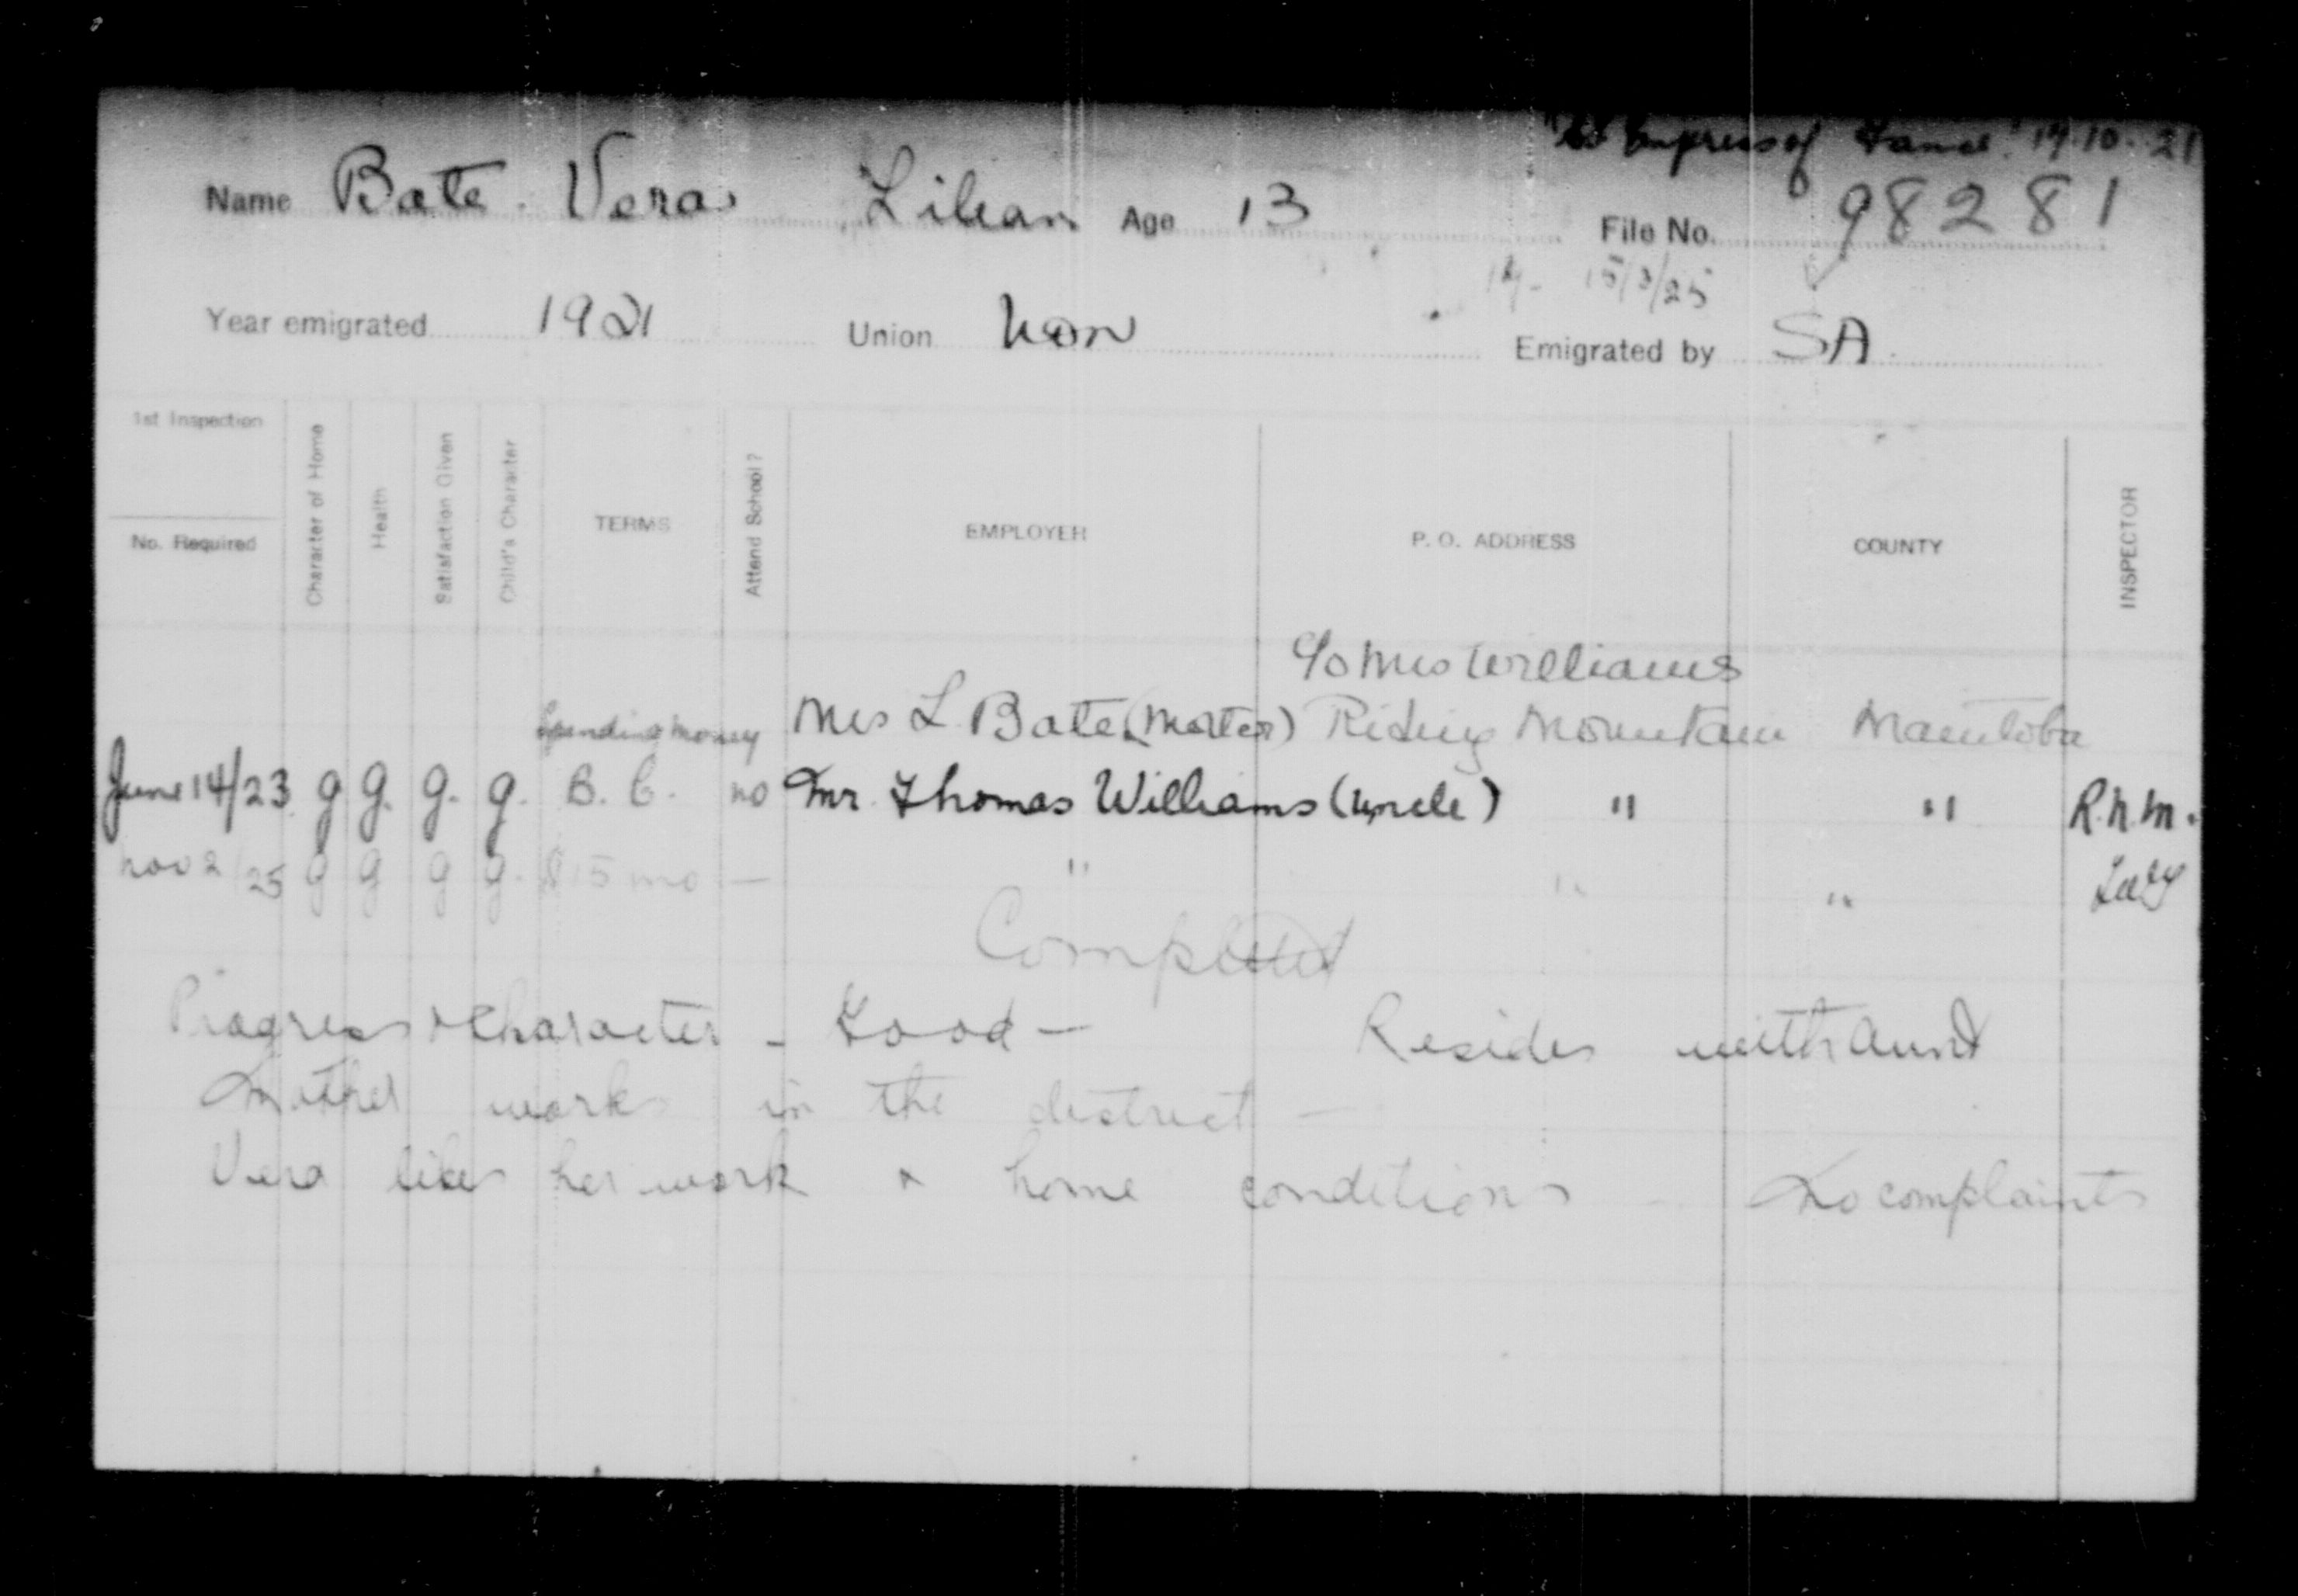 Empress of 19.10.21
Name Bate. Vera Lilian Age 13 File No. 98281
15/3/25
Year emigrated 1921 Union Non Emigrated by SA
1st Inspection
No. Required
Character of Home
Health
Satisfaction Given
Child's Character
TERMS
Attend School?
EMPLOYER
P. O. ADDRESS
COUNTY
INSPECTOR
c/o Mrs Williams
Mrs L. Bate (Mother) Riding Mountain Manitoba
Spending money
June 14/23 g g. g. g. B. C. no Mr. Thomas Williams (Uncle) " " R.N.M.
Nov 2/25 g g g g. $15 mo — " " "
Completed
Progress & Character - Good — Resides with aunt
Mother works in the district —
Vera likes her work & home conditions - No complaints